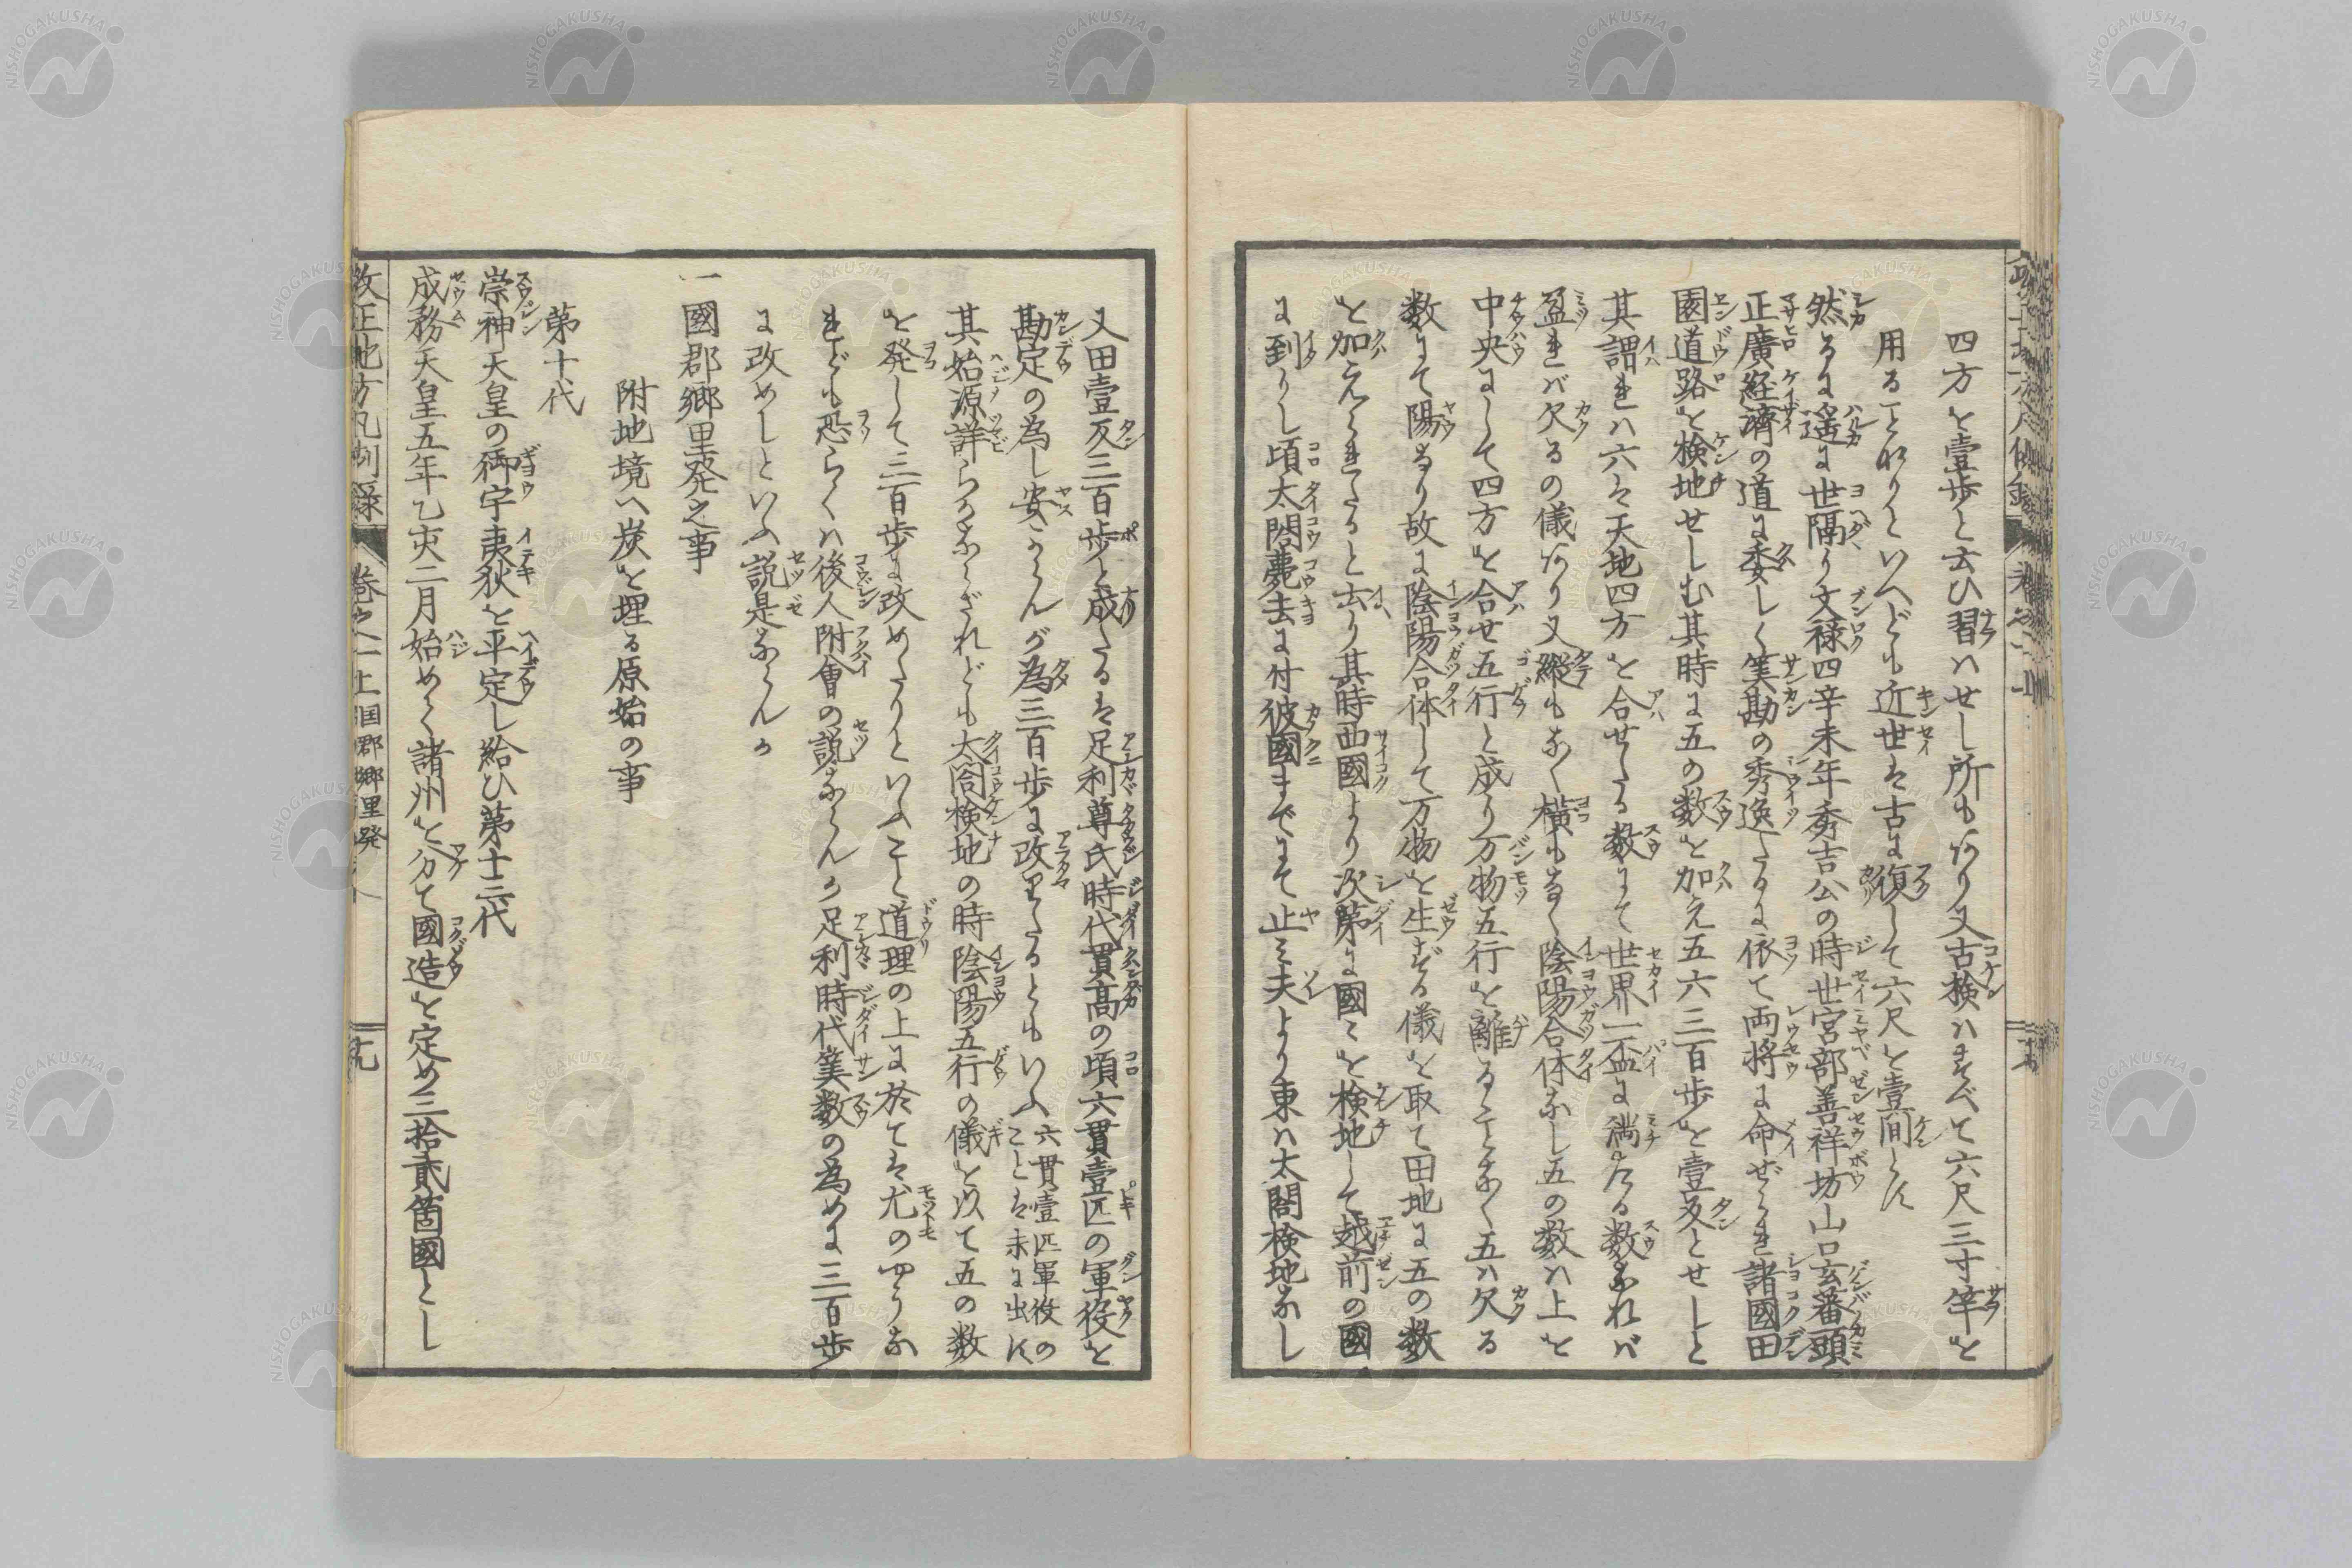 四方を壹歩と云ひ習ハせし所もあり又古検ハすべて六尺三寸竿を
用ることありといへども近世は古に復して六尺を壹間とす
然るに遥に世隔り文禄四辛未年秀吉公の時世宮部善祥坊山口玄蕃頭
正廣経済の道に委しく筭勘の秀逸たるに依て両将に命ぜられ諸國田
園道路を検地せしむ其時に五の数を加え五六三百歩を壹反とせしと
其謂れハ六は天地四方を合せたる数にて世界一盃に満たる数なれバ
盈れバ欠るの儀あり又縦もなく横もなく陰陽合体なし五の数ハ上を
中央にして四方を合せ五行と成り万物五行を離ることなく五ハ欠る
数にて陽なり故に陰陽合体して万物を生ずる儀を取て田地に五の数
を加えられたると云り其時西國より次第に國々を検地して越前の國
に到りし頃太閤薨去に付彼國までにて止ミ夫より東ハ太閤検地なし
又田壹反三百歩と成たるは足利尊氏時代貫高の頃六貫壹匹の軍役を
勘定の為し安からんが為三百歩に改りたるともいふ六貫壹匹軍役のことは未に出す
其始源詳らかならざれども太閤検地の時陰陽五行の儀を以て五の数
を発して三百歩に改めたりといふこと道理の上に於ては尤のやうな
れども恐らくハ後人附會の説ならんか足利時代筭数の為めに三百歩
に改めしといふ説是ならんか
一國郡郷里発之事
附地境へ炭を埋る原始の事
第十代
崇神天皇の御宇夷狄を平定し給ひ第十三代
成務天皇五年乙亥二月始めて諸州を分て國造を定め三拾貳箇國とし
改正地方凡例録 巻之一上 国郡郷里発 十九